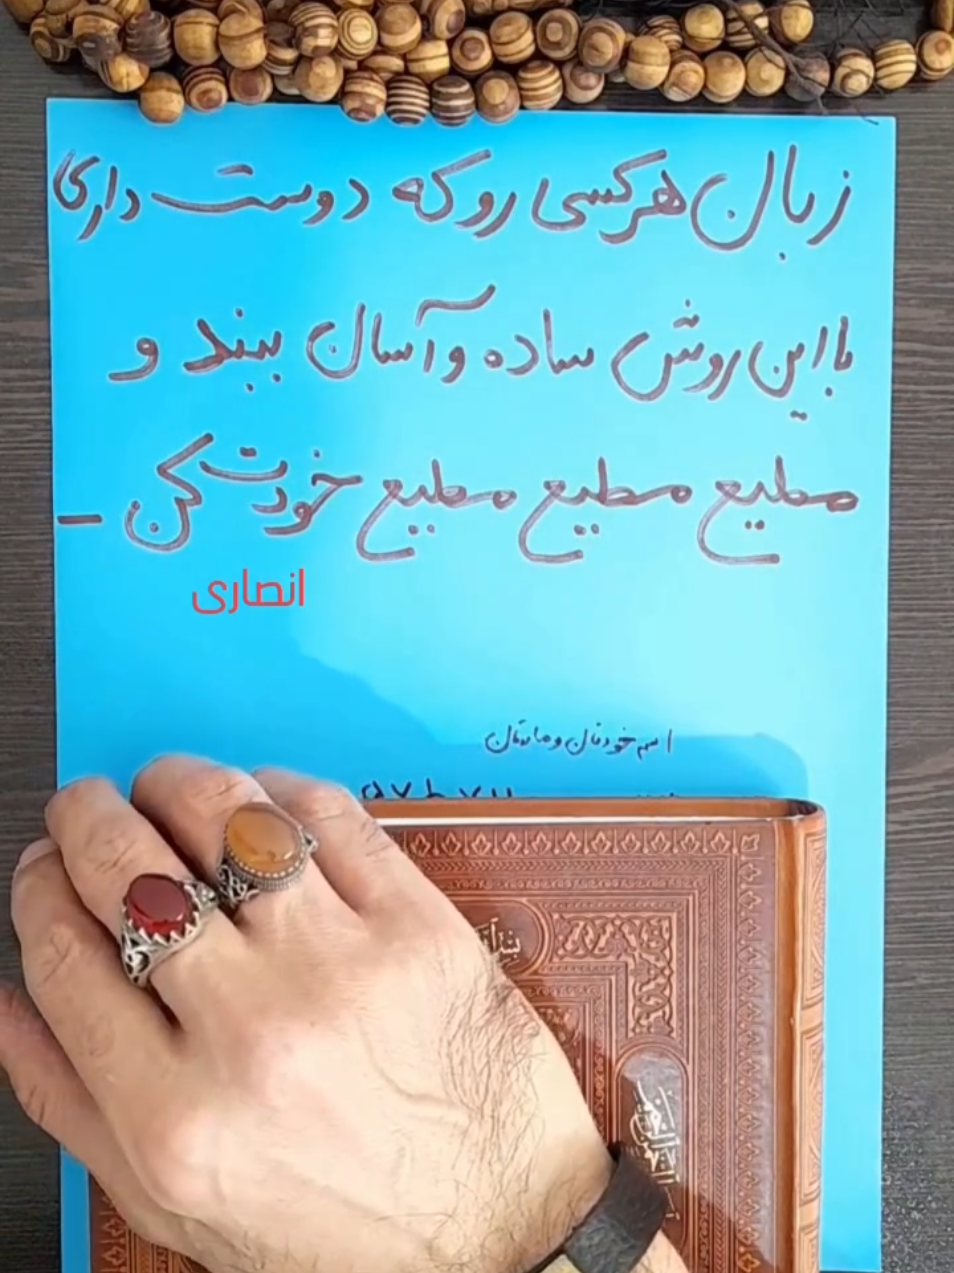 زبان هرکسی رو که دوست داری
با این روش ساده و آسان ببند و
مطیع مطیع مطیع خودت کن -
انصاری
اسم خودتان و مادرتان